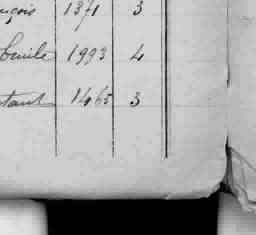 nçois 1371 3
Emile 1993 4
stant 1465 3